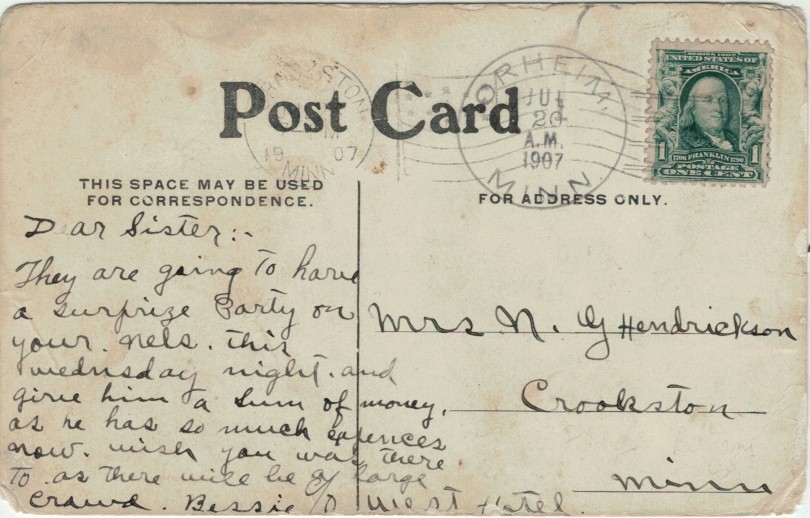 Post Card
CROOKSTON
19 07
MINN
ORHEIM,
JUL
20
A.M.
1907
MINN
SERIES 1902
UNITED STATES OF
AMERICA
1 1706 FRANKLIN 1790 1
POSTAGE
ONE CENT
THIS SPACE MAY BE USED
FOR CORRESPONDENCE.
FOR ADDRESS ONLY.
Dear Sister:-
They are going to have
a surprize Party on
your. nels. this
wednsday night. and
give him a sum of money,
as he has so much expences
now. wish you was there
to. as there will be a large
crowd. Bessie West Hotel.
Mrs N. G Hendrickson
Crookston
Minn